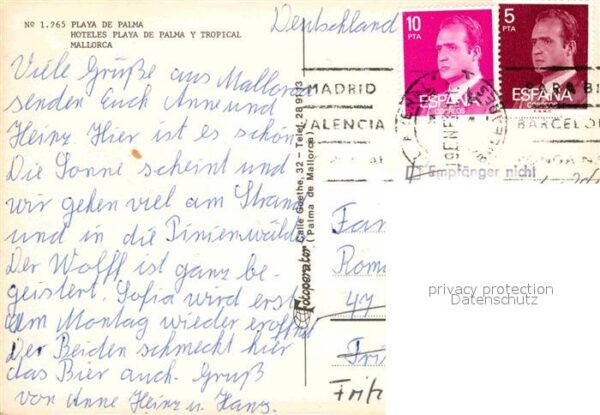 Nº 1.265 PLAYA DE PALMA
HOTELES PLAYA DE PALMA Y TROPICAL
MALLORCA
Deutschland
Viele Grüße aus Mallorca
senden Euch Anne und
Heinz Hier ist es schön
Die Sonne scheint und
wir gehen viel am Strand
und in die Pinienwälder
Der Wolff ist ganz be-
geistert. Sofia wird erst
am Montag wieder eröffnet
Der Beiden schmeckt hier
das Bier auch. Gruß
von Anne Heinz u. Hans.
Fotoperator
Calle Goethe, 32 - Telef. 28
(Palma de Mallorca)
10
PTA
ESPAÑA
CORREOS
5
PTA
ESPAÑA
CORREOS
MADRID
VALENCIA
BARCEL
Empfänger nicht
Fam
Rom
privacy protection
Datenschutz
Fritz